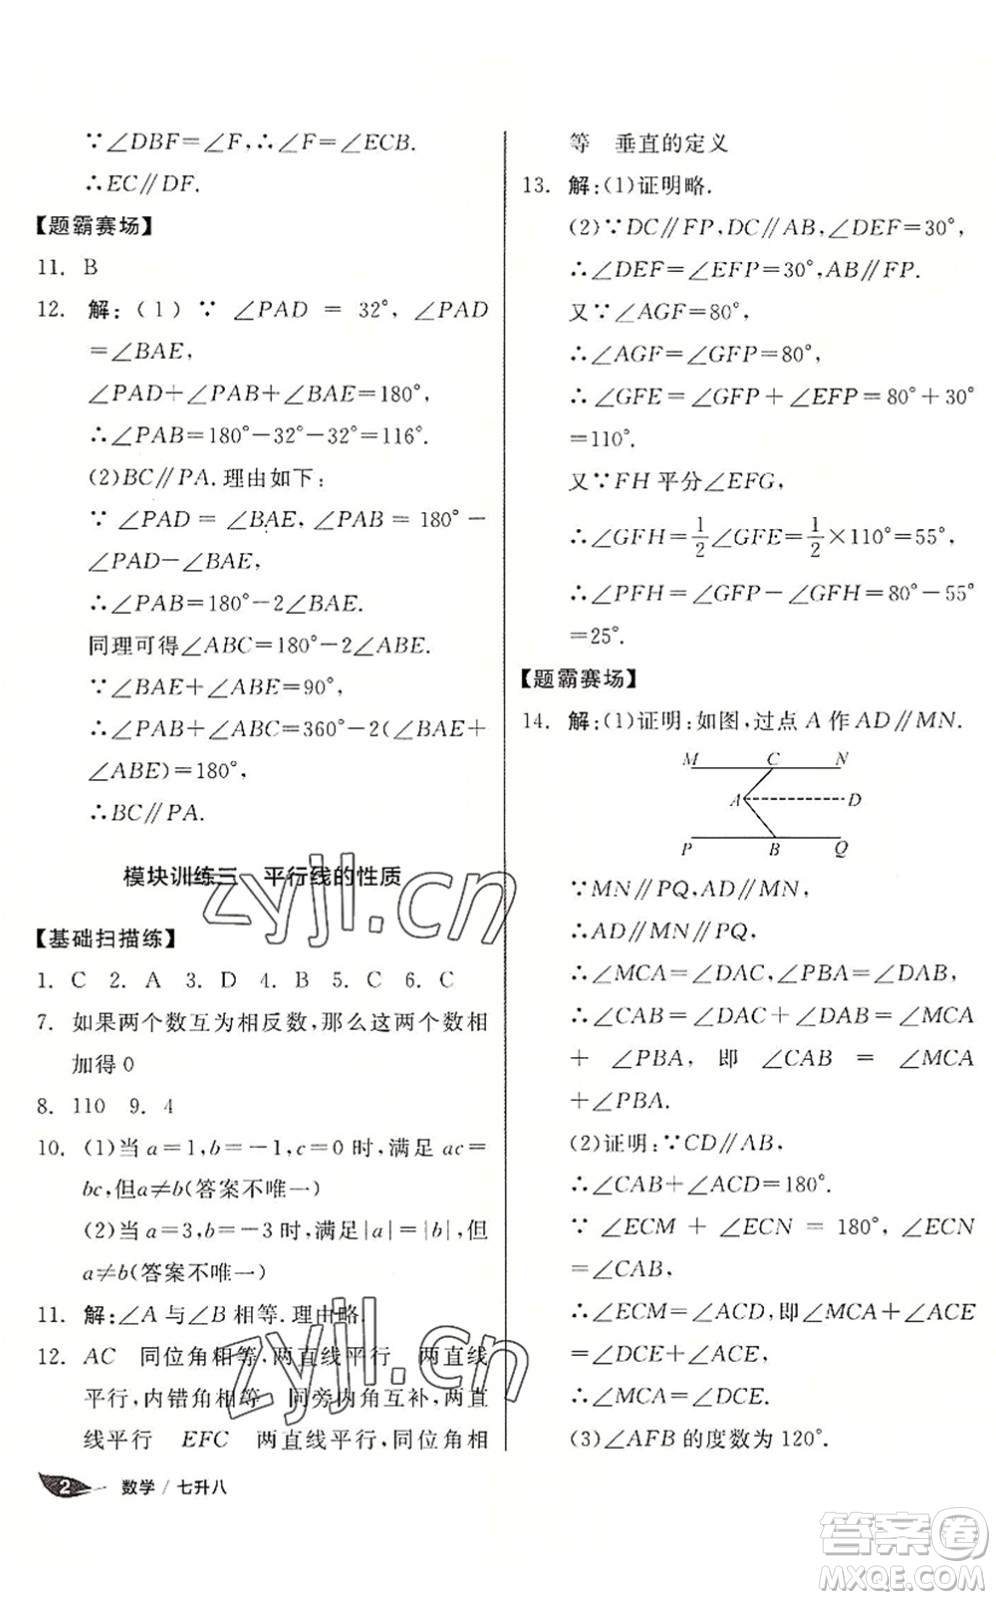 ∵∠DBF=∠F,∴∠F=∠ECB.
∴EC∥DF.
【题霸赛场】
11. B
12. 解:(1)∵ ∠PAD = 32°,∠PAD
=∠BAE,
∠PAD+∠PAB+∠BAE=180°,
∴∠PAB=180°-32°-32°=116°.
(2)BC∥PA.理由如下:
∵ ∠PAD = ∠BAE,∠PAB = 180° -
∠PAD-∠BAE,
∴∠PAB=180°-2∠BAE.
同理可得∠ABC=180°-2∠ABE.
∵∠BAE+∠ABE=90°,
∴∠PAB+∠ABC=360°-2(∠BAE+
∠ABE)=180°,
∴BC∥PA.
模块训练三 平行线的性质
【基础扫描练】
1. C 2. A 3. D 4. B 5. C 6. C
7. 如果两个数互为相反数,那么这两个数相
加得0
8. 110 9. 4
10. (1)当a=1,b=-1,c=0时,满足ac=
bc,但a≠b(答案不唯一)
(2)当a=3,b=-3时,满足|a|=|b|,但
a≠b(答案不唯一)
11. 解:∠A与∠B相等.理由略.
12. AC 同位角相等,两直线平行 两直线
平行,内错角相等 同旁内角互补,两直
线平行 EFC 两直线平行,同位角相
等 垂直的定义
13. 解:(1)证明略.
(2)∵DC∥FP,DC∥AB,∠DEF=30°,
∴∠DEF=∠EFP=30°,AB∥FP.
又∵∠AGF=80°,
∴∠AGF=∠GFP=80°,
∴∠GFE=∠GFP+∠EFP=80°+30°
=110°.
又∵FH平分∠EFG,
∴∠GFH=1/2∠GFE=1/2×110°=55°,
∴∠PFH=∠GFP-∠GFH=80°-55°
=25°.
【题霸赛场】
14. 解:(1)证明:如图,过点A作AD∥MN.
M C N
A D
P B Q
∵MN∥PQ,AD∥MN,
∴AD∥MN∥PQ,
∴∠MCA=∠DAC,∠PBA=∠DAB,
∴∠CAB=∠DAC+∠DAB=∠MCA
+∠PBA, 即 ∠CAB = ∠MCA
+∠PBA.
(2)证明:∵CD∥AB,
∴∠CAB+∠ACD=180°.
∵ ∠ECM + ∠ECN = 180°,∠ECN
=∠CAB,
∴∠ECM=∠ACD,即∠MCA+∠ACE
=∠DCE+∠ACE,
∴∠MCA=∠DCE.
(3)∠AFB的度数为120°.
2 数学/七升八
zyjl.cn
zyjl.cn
答案卷
MXQE.COM